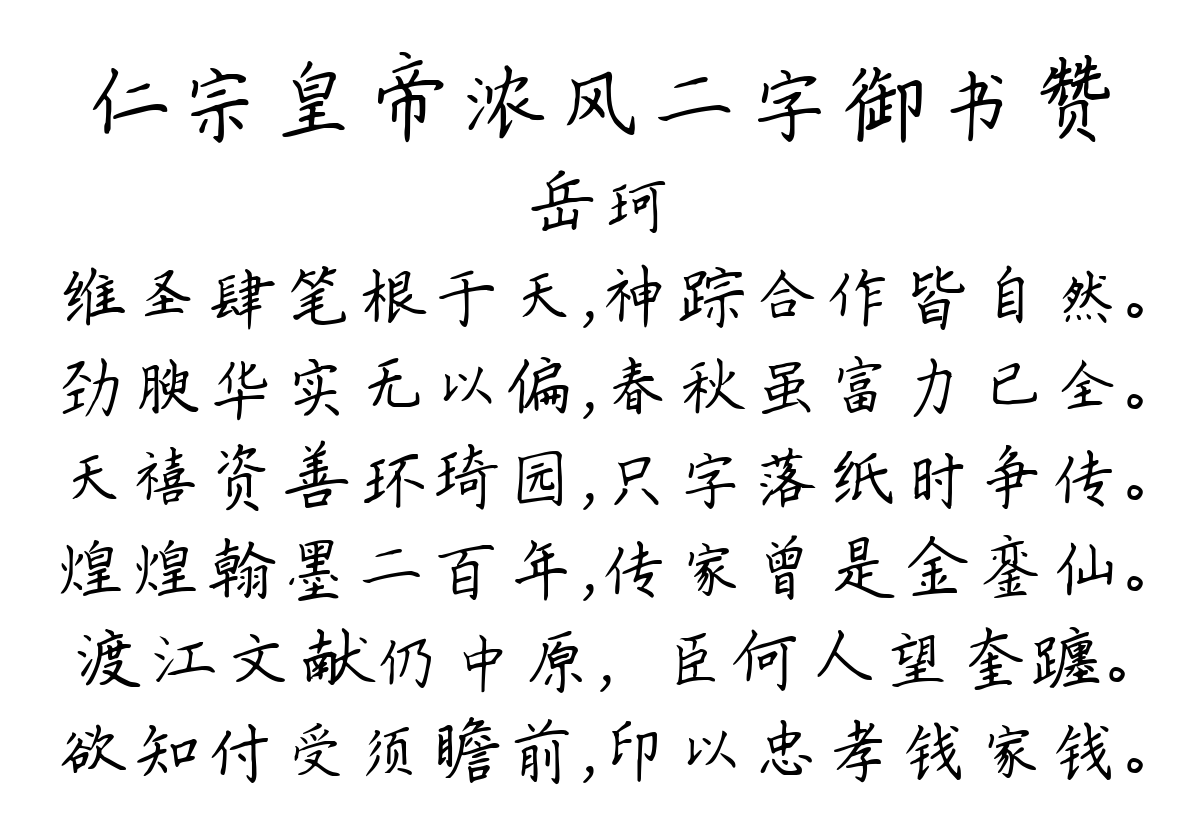 仁宗皇帝浓风二字御书赞
岳珂
维圣肆笔根于天,神踪合作皆自然。
劲腴华实无以偏,春秋虽富力已全。
天禧资善环琦园,只字落纸时争传。
煌煌翰墨二百年,传家曾是金銮仙。
渡江文献仍中原,臣何人望奎躔。
欲知付受须瞻前,印以忠孝钱家钱。